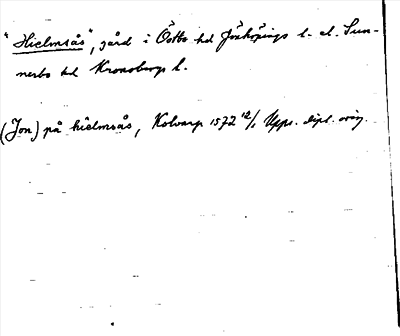 "Hielmsås", gård i Östbo hd Jönköpings l. el. Sun-
nerbo hd Kronobergs l.
(Jon) på hielmsås, Kolvarp 1572 12/1 Upps. dipl. orig.